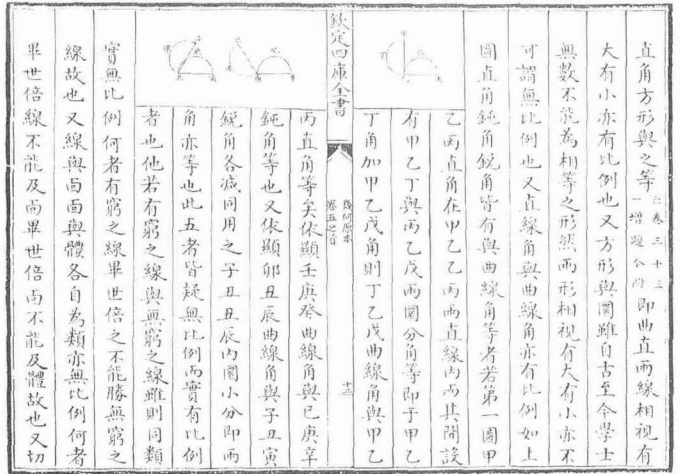 直角方形與之等六卷三十三一增題公附即曲直兩線相視有
大有小亦有比例也又方形與圜雖自古至今學士
無數不能為相等之形然兩形相視有大有小亦不
可謂無比例也又直線角與曲線角亦有比例如上
圖直角鈍角銳角皆有與曲線角等者若第一圖甲
乙丙直角在甲乙乙丙兩直線內而其間設
有甲乙丁與丙乙戊兩圜分角等即于甲乙
丁角加甲乙戊角則丁乙戊曲線角與甲乙
欽定四庫全書
幾何原本
卷五之首
十三
丙直角等矣依顯壬庚癸曲線角與己庚辛
鈍角等也又依顯卯丑辰曲線角與子丑寅
銳角各減同用之子丑丑辰內圜小分即兩
角亦等也此五者皆疑無比例而實有比例
者也他若有窮之線與無窮之線雖則同類
實無比例何者有窮之線畢世倍之不能勝無窮之
線故也又線與面面與體各自為類亦無比例何者
畢世倍線不能及面畢世倍面不能及體故也又切